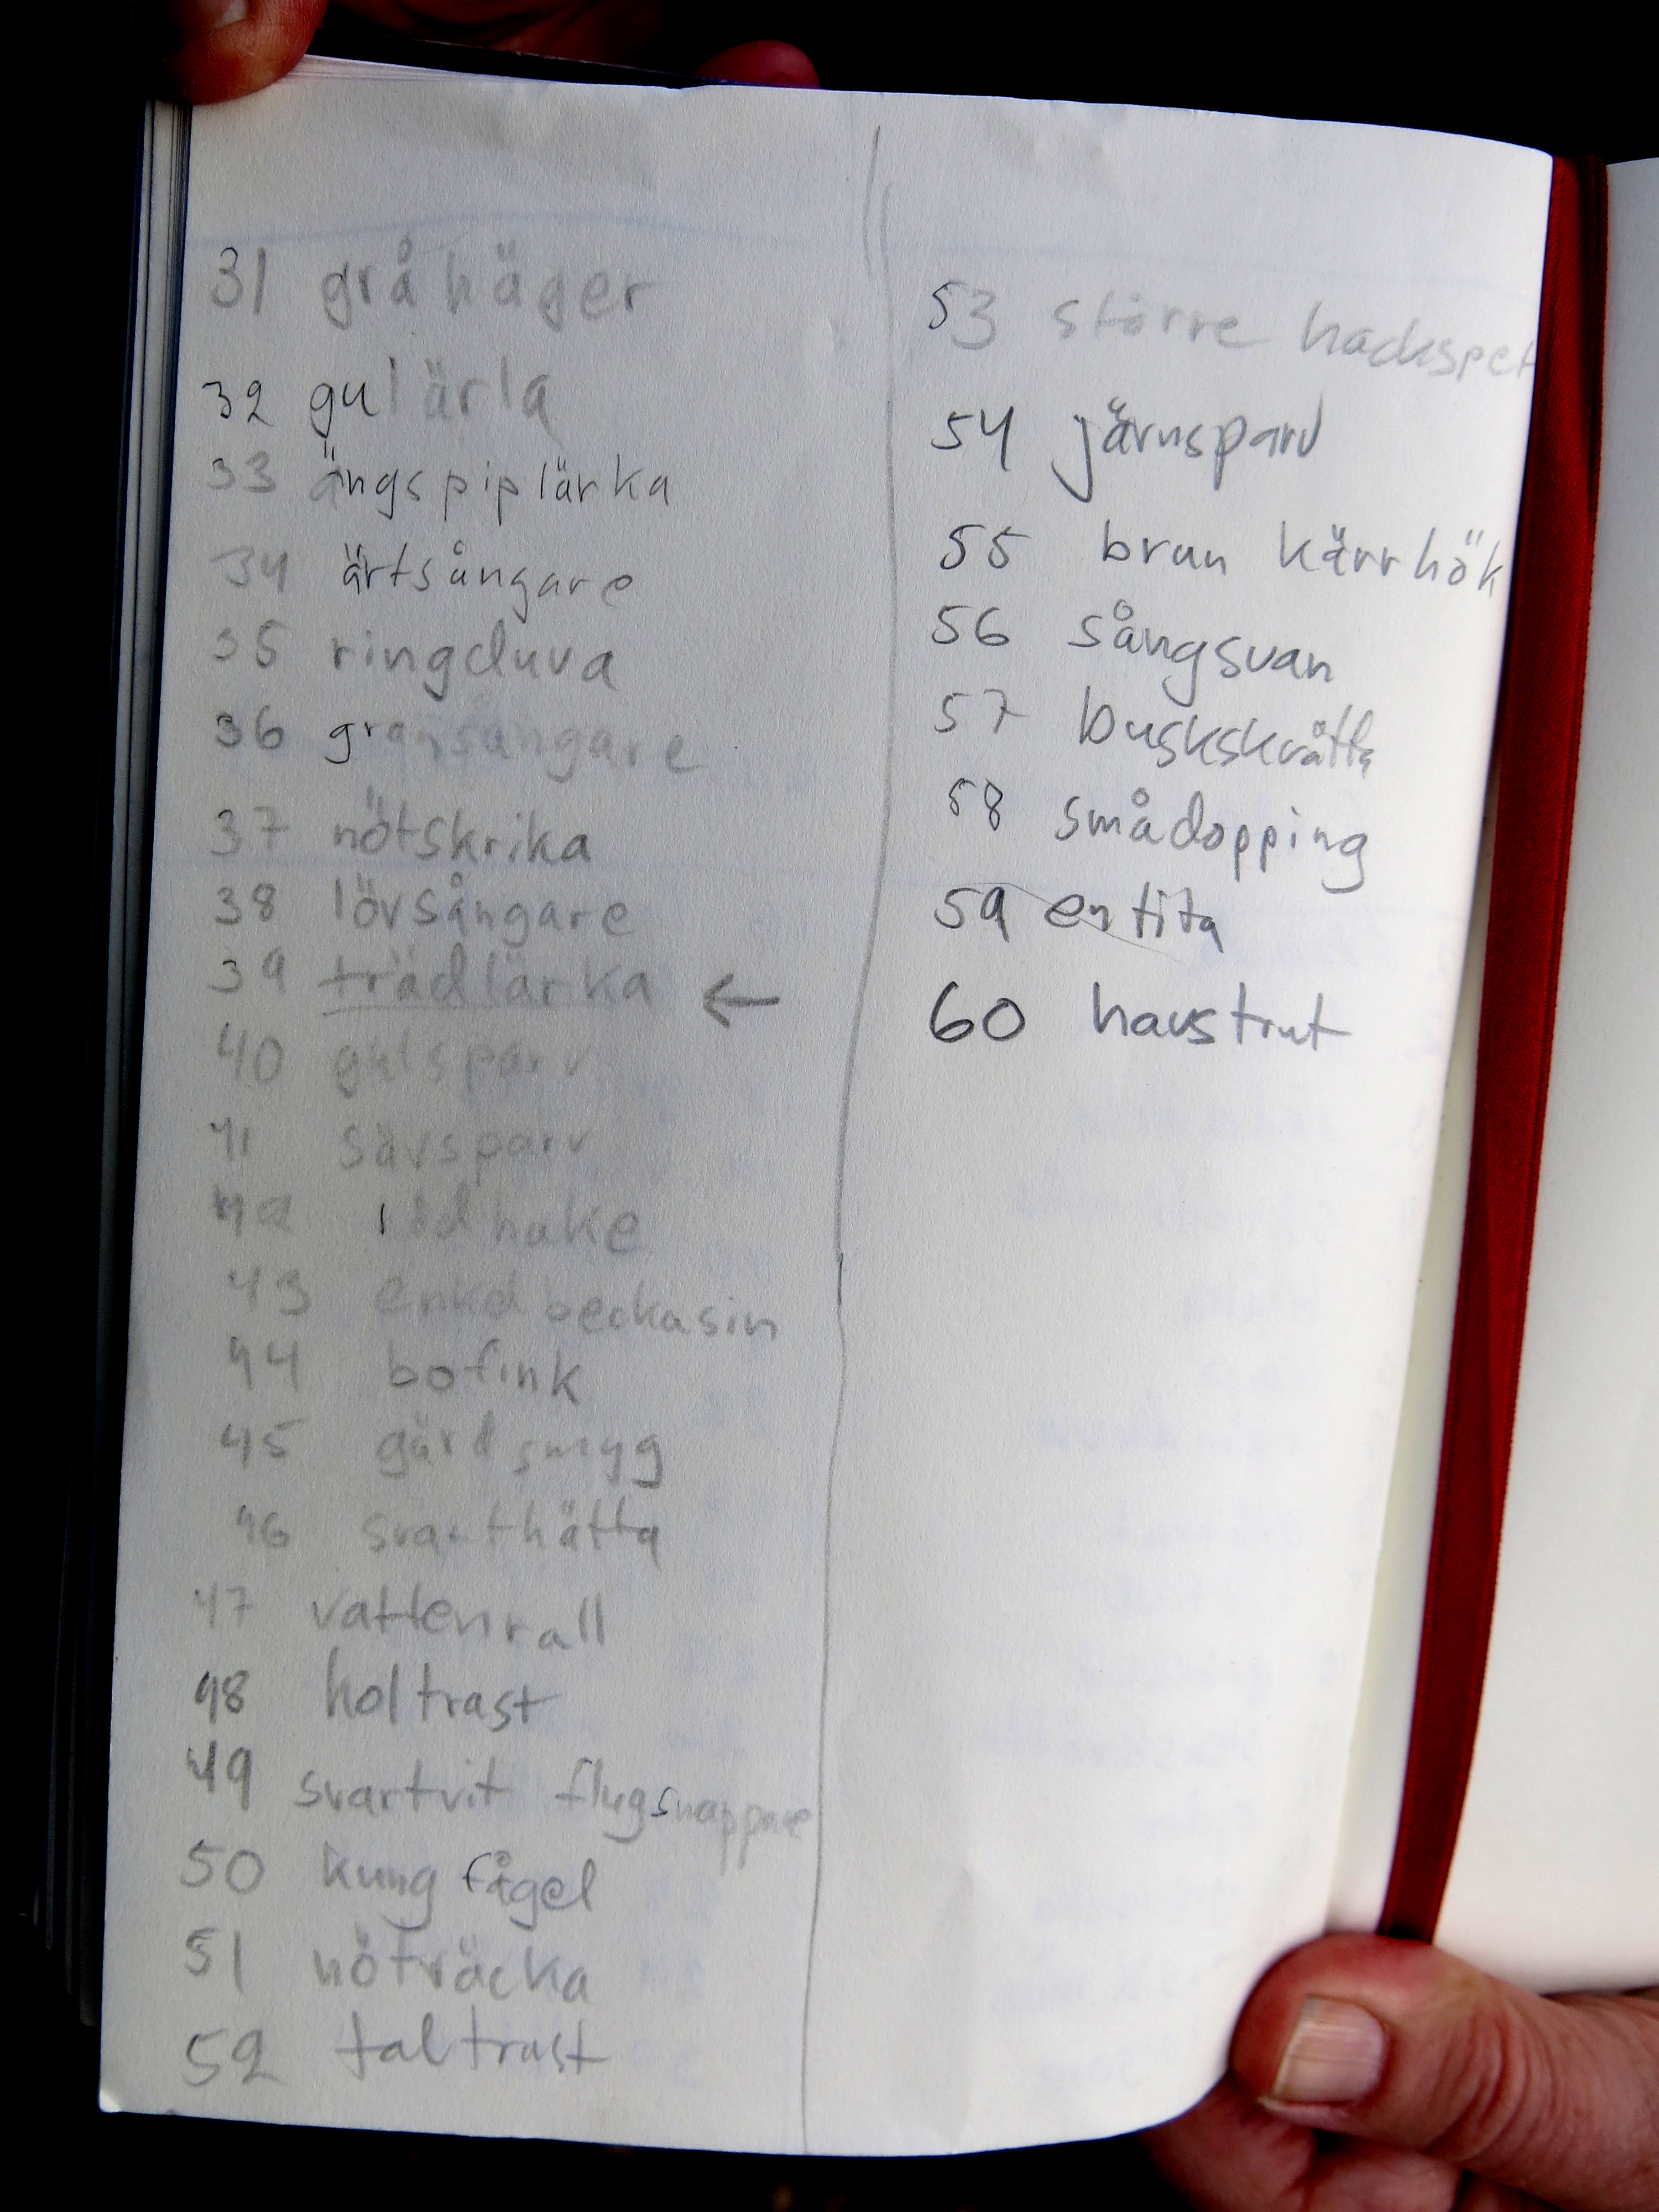 31 gråhäger
32 gulärla
33 ängspiplärka
34 ärtsångare
35 ringduva
36 gransångare
37 nötskrika
38 lövsångare
39 trädlärka ←
40 gulsparv
41 sävsparv
42 rödhake
43 enkelbeckasin
44 bofink
45 gärdsmyg
46 svarthätta
47 vattenrall
48 koltrast
49 svartvit flugsnappare
50 kungfågel
51 nötväcka
52 taltrast
53 större hackspet
54 järnsparv
55 brun kärrhök
56 sångsvan
57 buskskvätta
58 smådopping
59 entita
60 havstrut